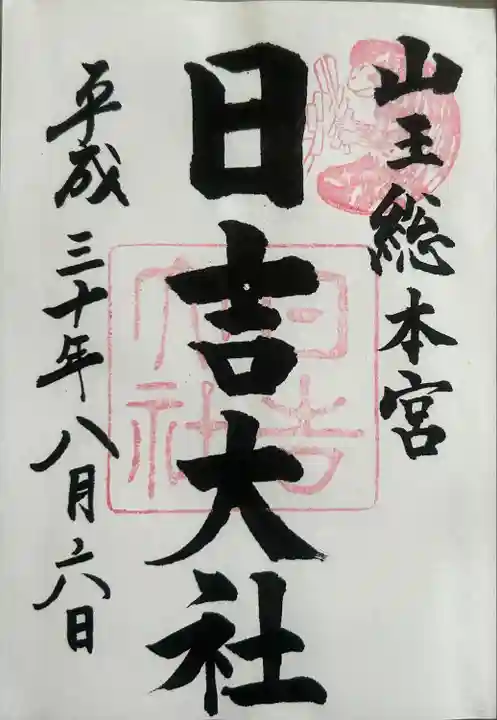 山王総本宮
日吉大社
平成三十年八月六日
日吉
大社